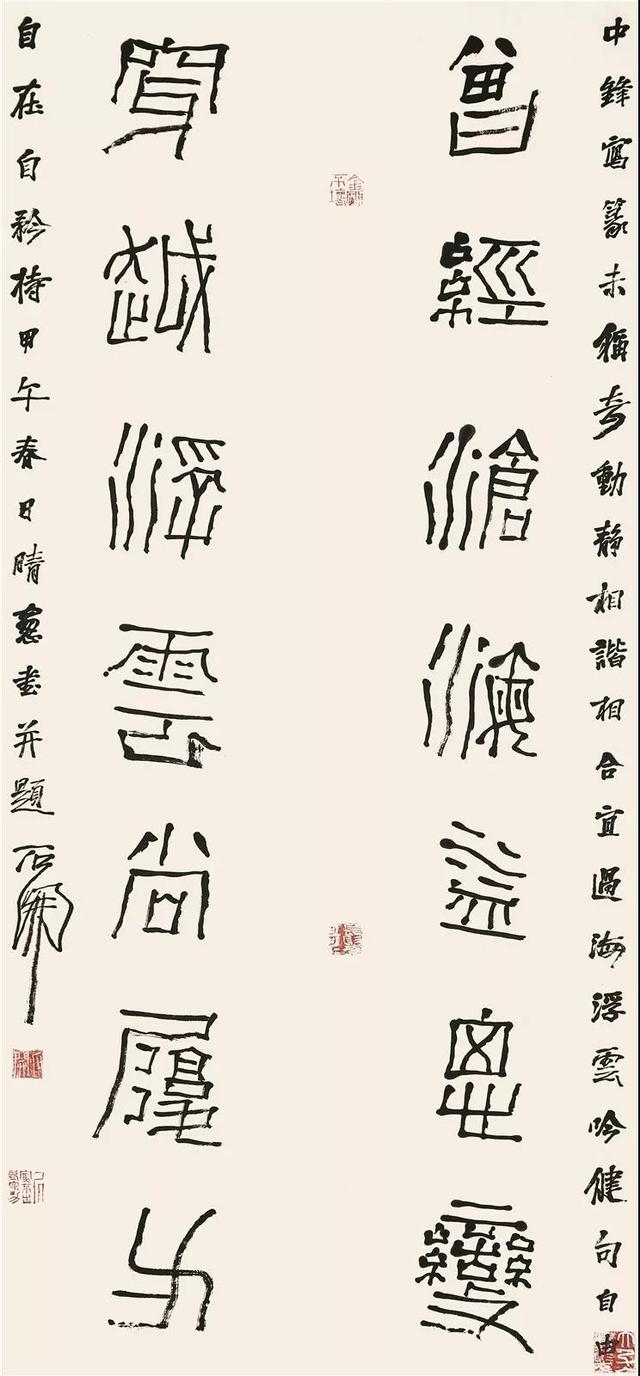 中鋒寫篆未稱奇動靜相諧相合宜過海浮雲吟健句自申
曾經滄海益思變
穿越浮雲尚履方
自在自矜持甲午春日晴窻書并題石開